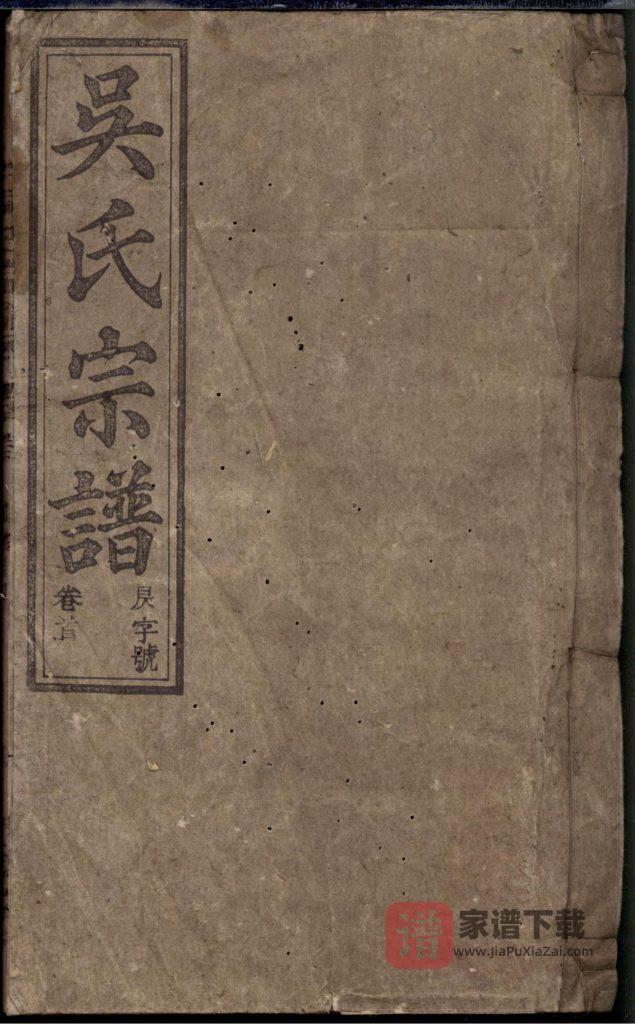 吳氏宗譜
字號
卷首
譜
家谱下载
www.JiaPuXiaZai.com